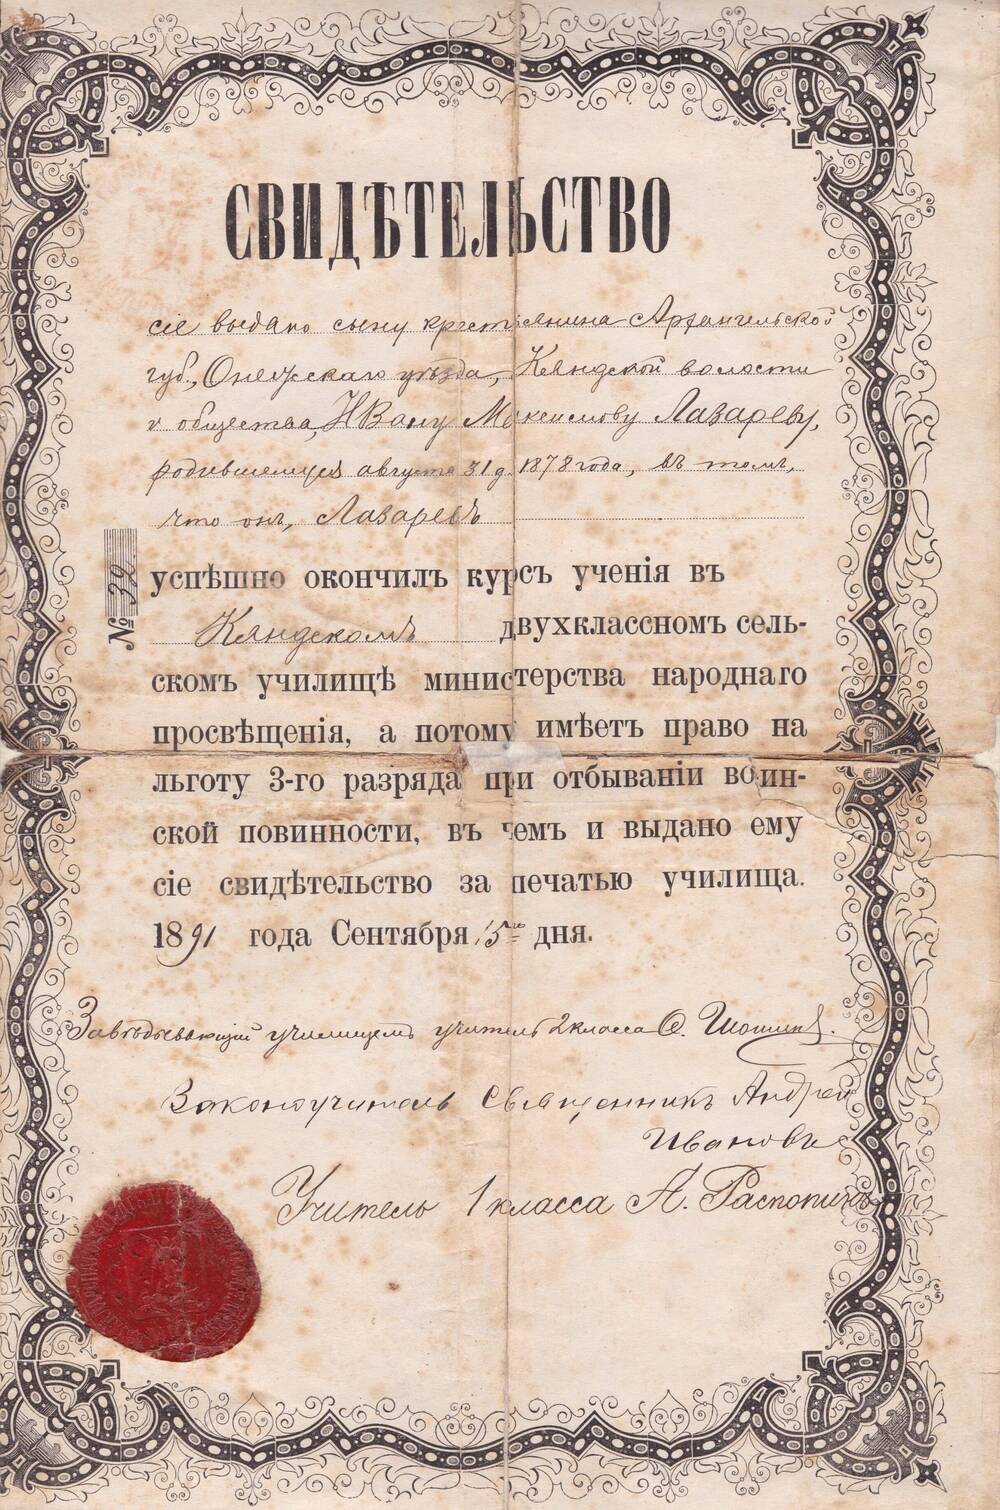 СВИДѢТЕЛЬСТВО
сіе выдано сыну крестьянина Архангельской
губ., Онежскаго уѣзда, Кяндской волости
и общества, Ивану Максимову Лазареву,
родившемуся августа 31 д. 1878 года, въ томъ,
что онъ, Лазаревъ
№ 32
успѣшно окончилъ курсъ ученія въ
Кяндскомъ двухклассномъ сель-
скомъ училищѣ министерства народнаго
просвѣщенія, а потому имѣетъ право на
льготу 3-го разряда при отбываніи воин-
ской повинности, въ чемъ и выдано ему
сіе свидѣтельство за печатью училища.
1891 года Сентября 15го дня.
Завѣдывающій училищемъ учитель 2 класса
Законоучитель Священникъ Андрей
Ивановъ
Учитель 1 класса А. Распопинъ